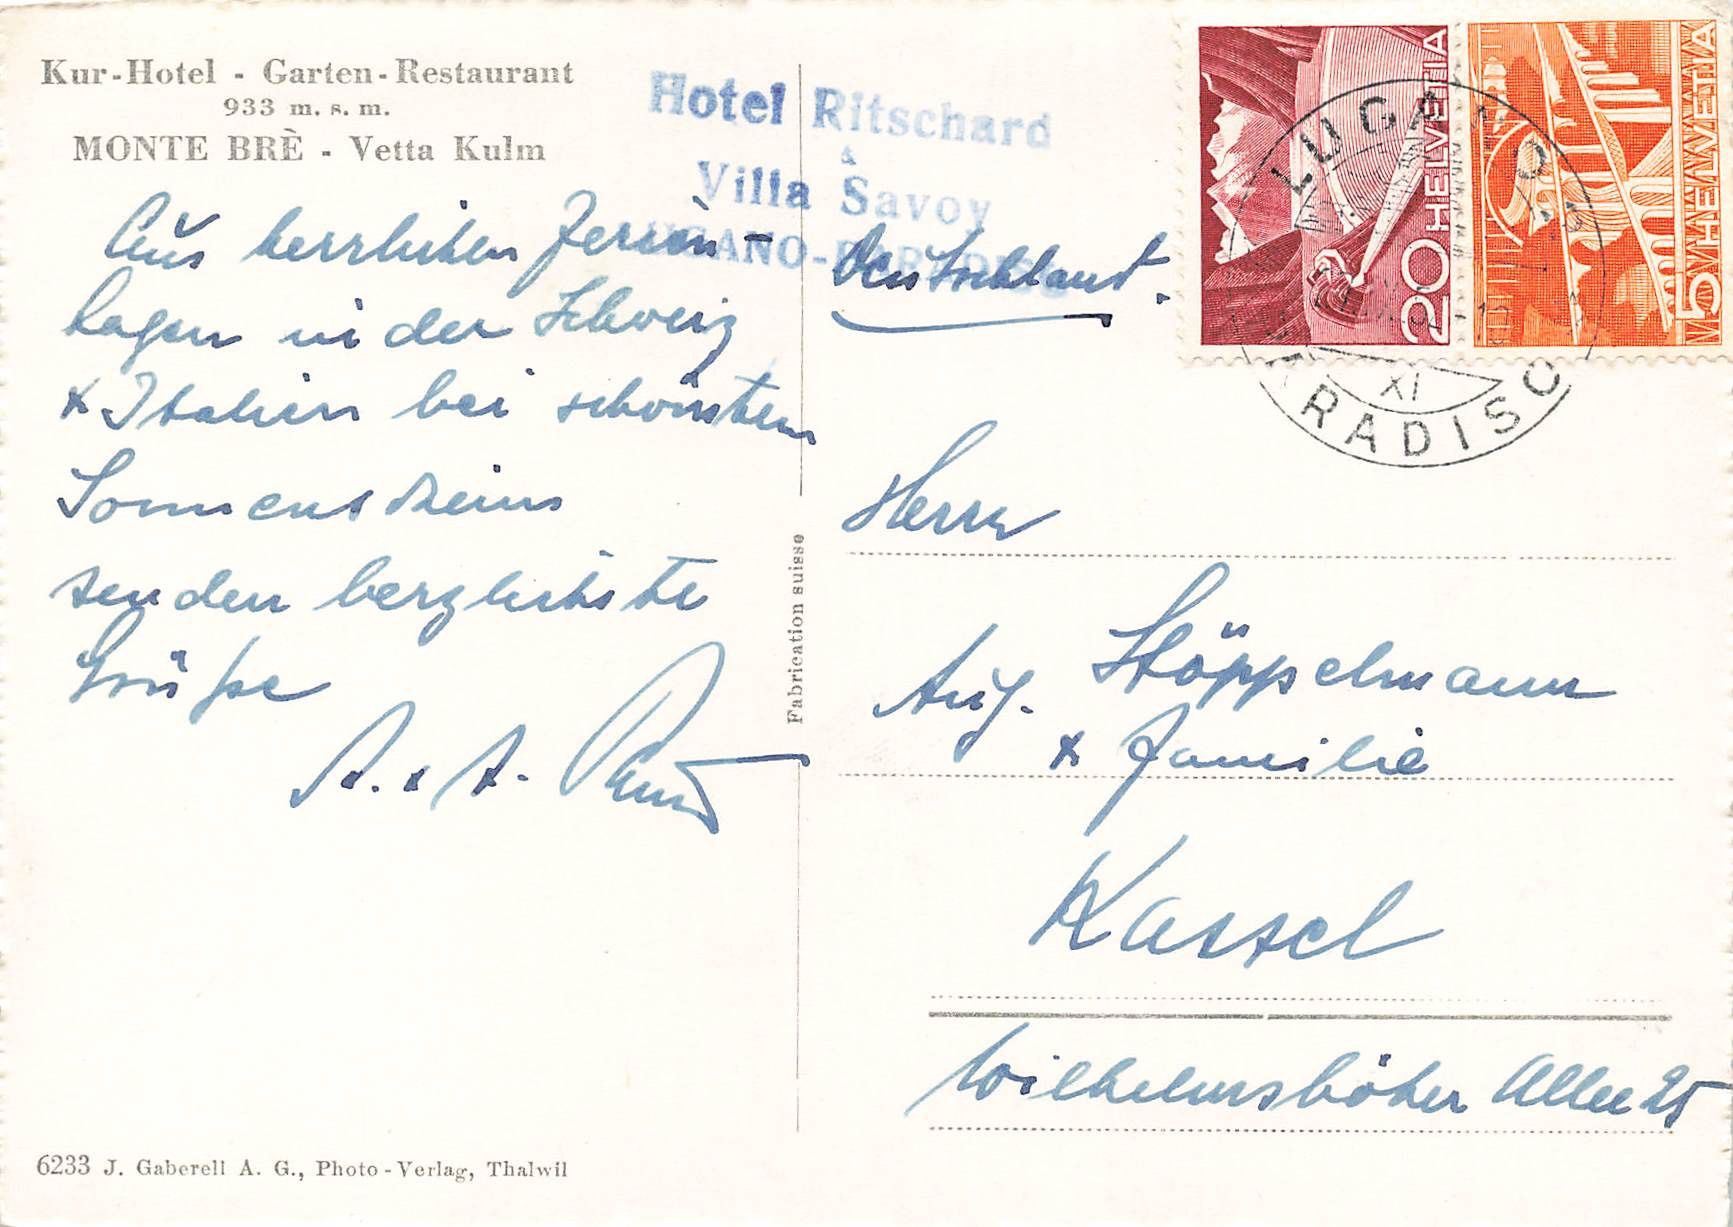 Kur-Hotel - Garten-Restaurant
933 m. s. m.
MONTE BRÈ - Vetta Kulm
Hotel Ritschard
&
Villa Savoy
LUGANO-PARADISO
Aus herrlichen Ferien-
tagen in der Schweiz
+ Italien bei schönstem
Sonnenschein
senden herzlichste
Grüße
A. + A.
Fabrication suisse
6233 J. Gaberell A. G., Photo-Verlag, Thalwil
20 HELVETIA
5 HELVETIA
LUGANO
PARADISO
XI
Deutschland.
Herrn
Aug. Stöppelmann
+ Familie
Kassel
Wilhelmshöher Allee 25